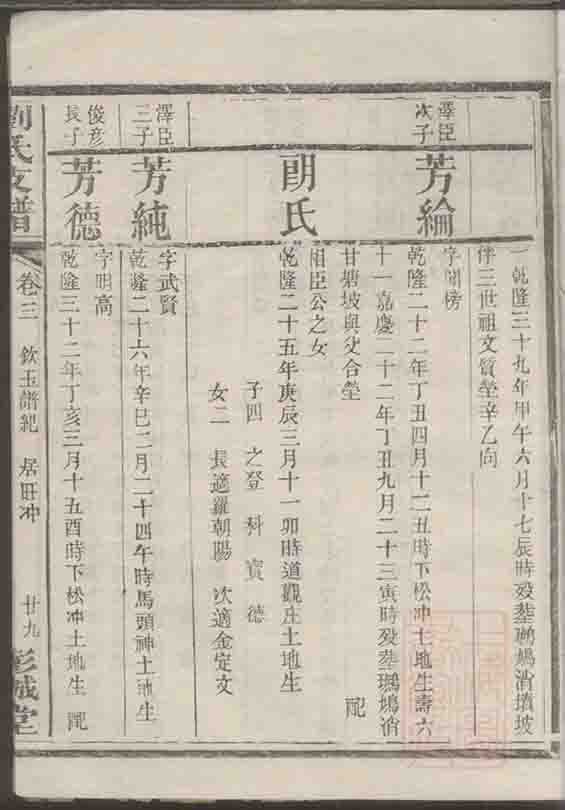 乾隆三十九年甲午六月十七辰時歿塟瑪鳩消墳坡
伴三世祖文質塋辛乙向
澤臣次子
芳綸
字開榜
乾隆二十二年丁丑四月十二丑時下松冲土地生壽六
十一嘉慶二十二年丁丑九月二十三寅時歿塟瑪鳩消
甘塘坡與父合塋 配
朗氏
相臣公之女
乾隆二十五年庚辰三月十一卯時道觀庄土地生
子四 之登 科 寶 德
女二 長適羅朝陽 次適金定文
澤臣三子
芳純
字武賢
乾隆二十六年辛巳二月二十四午時馬頭神土地生
俊彦長子
芳德
字明高
乾隆三十二年丁亥三月十五酉時下松冲土地生 配
劉氏支譜 卷三 欽玉譜紀 居旺冲 廿九 彭城堂